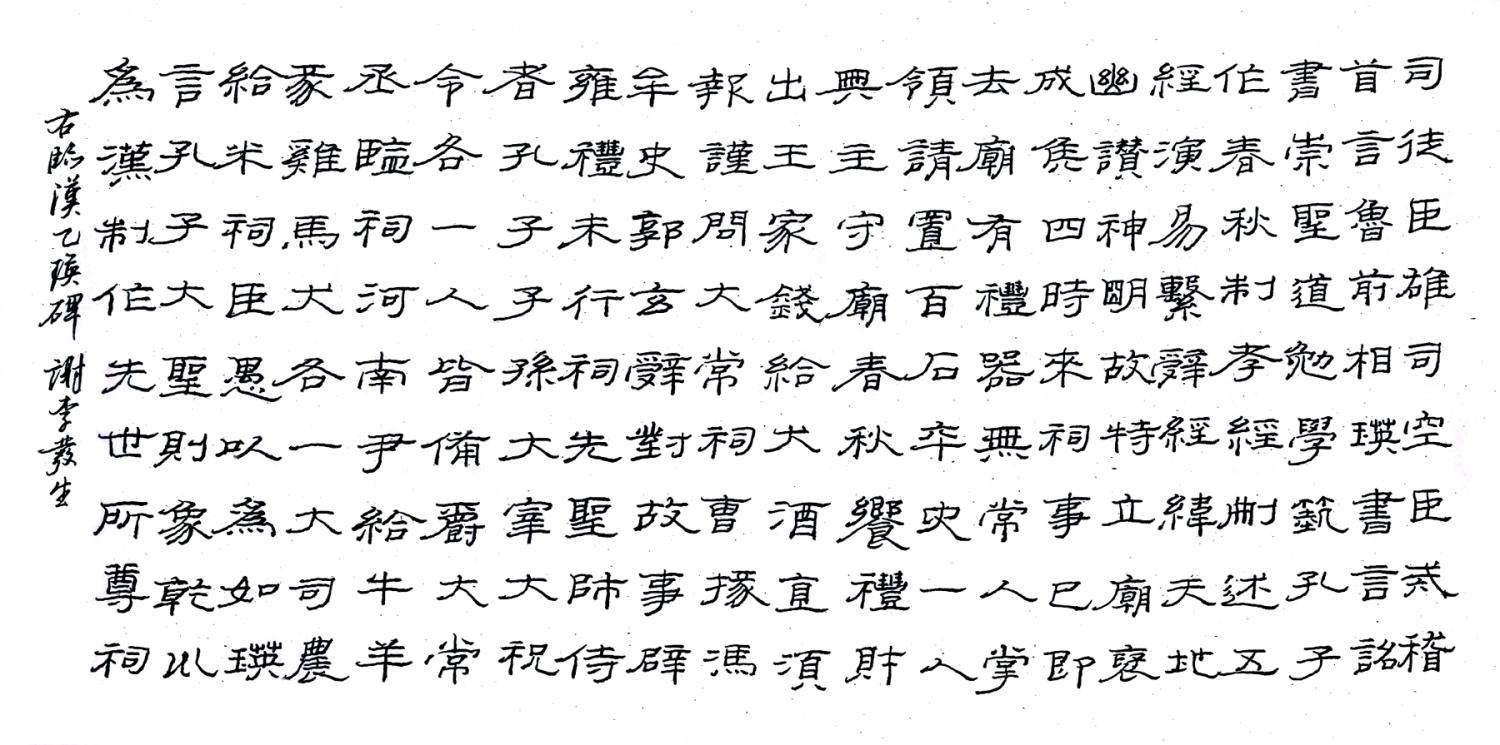 司徒臣雄司空臣戒稽
首言魯前相瑛書言詔
書崇聖道勉學藝孔子
作春秋制孝經刪述五
經演易繫辭經緯天地
幽讚神明故特立廟褒
成侯四時來祠事已即
去廟有禮器無常人掌
領請置百石卒史一人
典主守廟春秋饗禮財
出王家錢給犬酒直須
報謹問大常祠曹掾馮
牟史郭玄辭對故事辟
雍禮未行祠先聖師侍
者孔子子孫大宰大祝
令各一人皆備爵大常
丞監祠河南尹給牛羊
豕雞馬犬各一大司農
給米祠臣愚以為如瑛
言孔子大聖則象乾坤
為漢制作先世所尊祠
右臨漢乙瑛碑 謝李發生